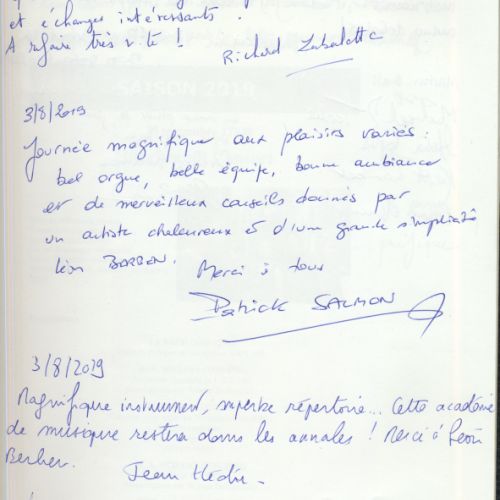 et échanges intéressants.
A refaire très vite !
Richard Zabalotta
3/8/2019
Journée magnifique aux plaisirs variés :
bel orgue, belle équipe, bonne ambiance
et de merveilleux conseils donnés par
un artiste chaleureux et d'une grande simplicité
Léon BERBEN. Merci à tous
Patrick SALMON
3/8/2019
Magnifique instrument, superbe répertoire... Cette académie
de musique restera dans les annales ! Merci à Léon
Berben.
Jean